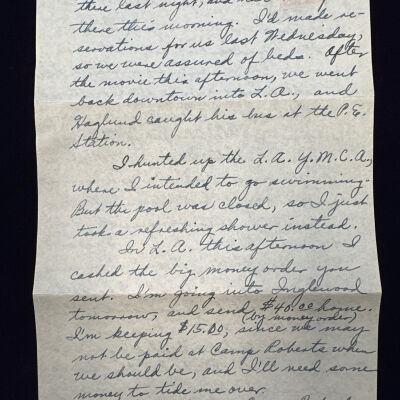 there last night, and
there this morning. I'd made re-
servations for us last Wednesday,
so we were assured of beds. After
the movie this afternoon, we went
back downtown into L.A., and
Haglund caught his bus at the P.E.
Station.
I hunted up the L.A. Y.M.C.A.,
where I intended to go swimming.
But the pool was closed, so I just
took a refreshing shower instead.
In L.A. this afternoon I
cashed the big money order you
sent. I'm going into Inglewood
tomorrow, and send $40.00 home.
(by money order)
I'm keeping $15.00, since we may
not be paid at Camp Roberts when
we should be, and I'll need some
money to tide me over.